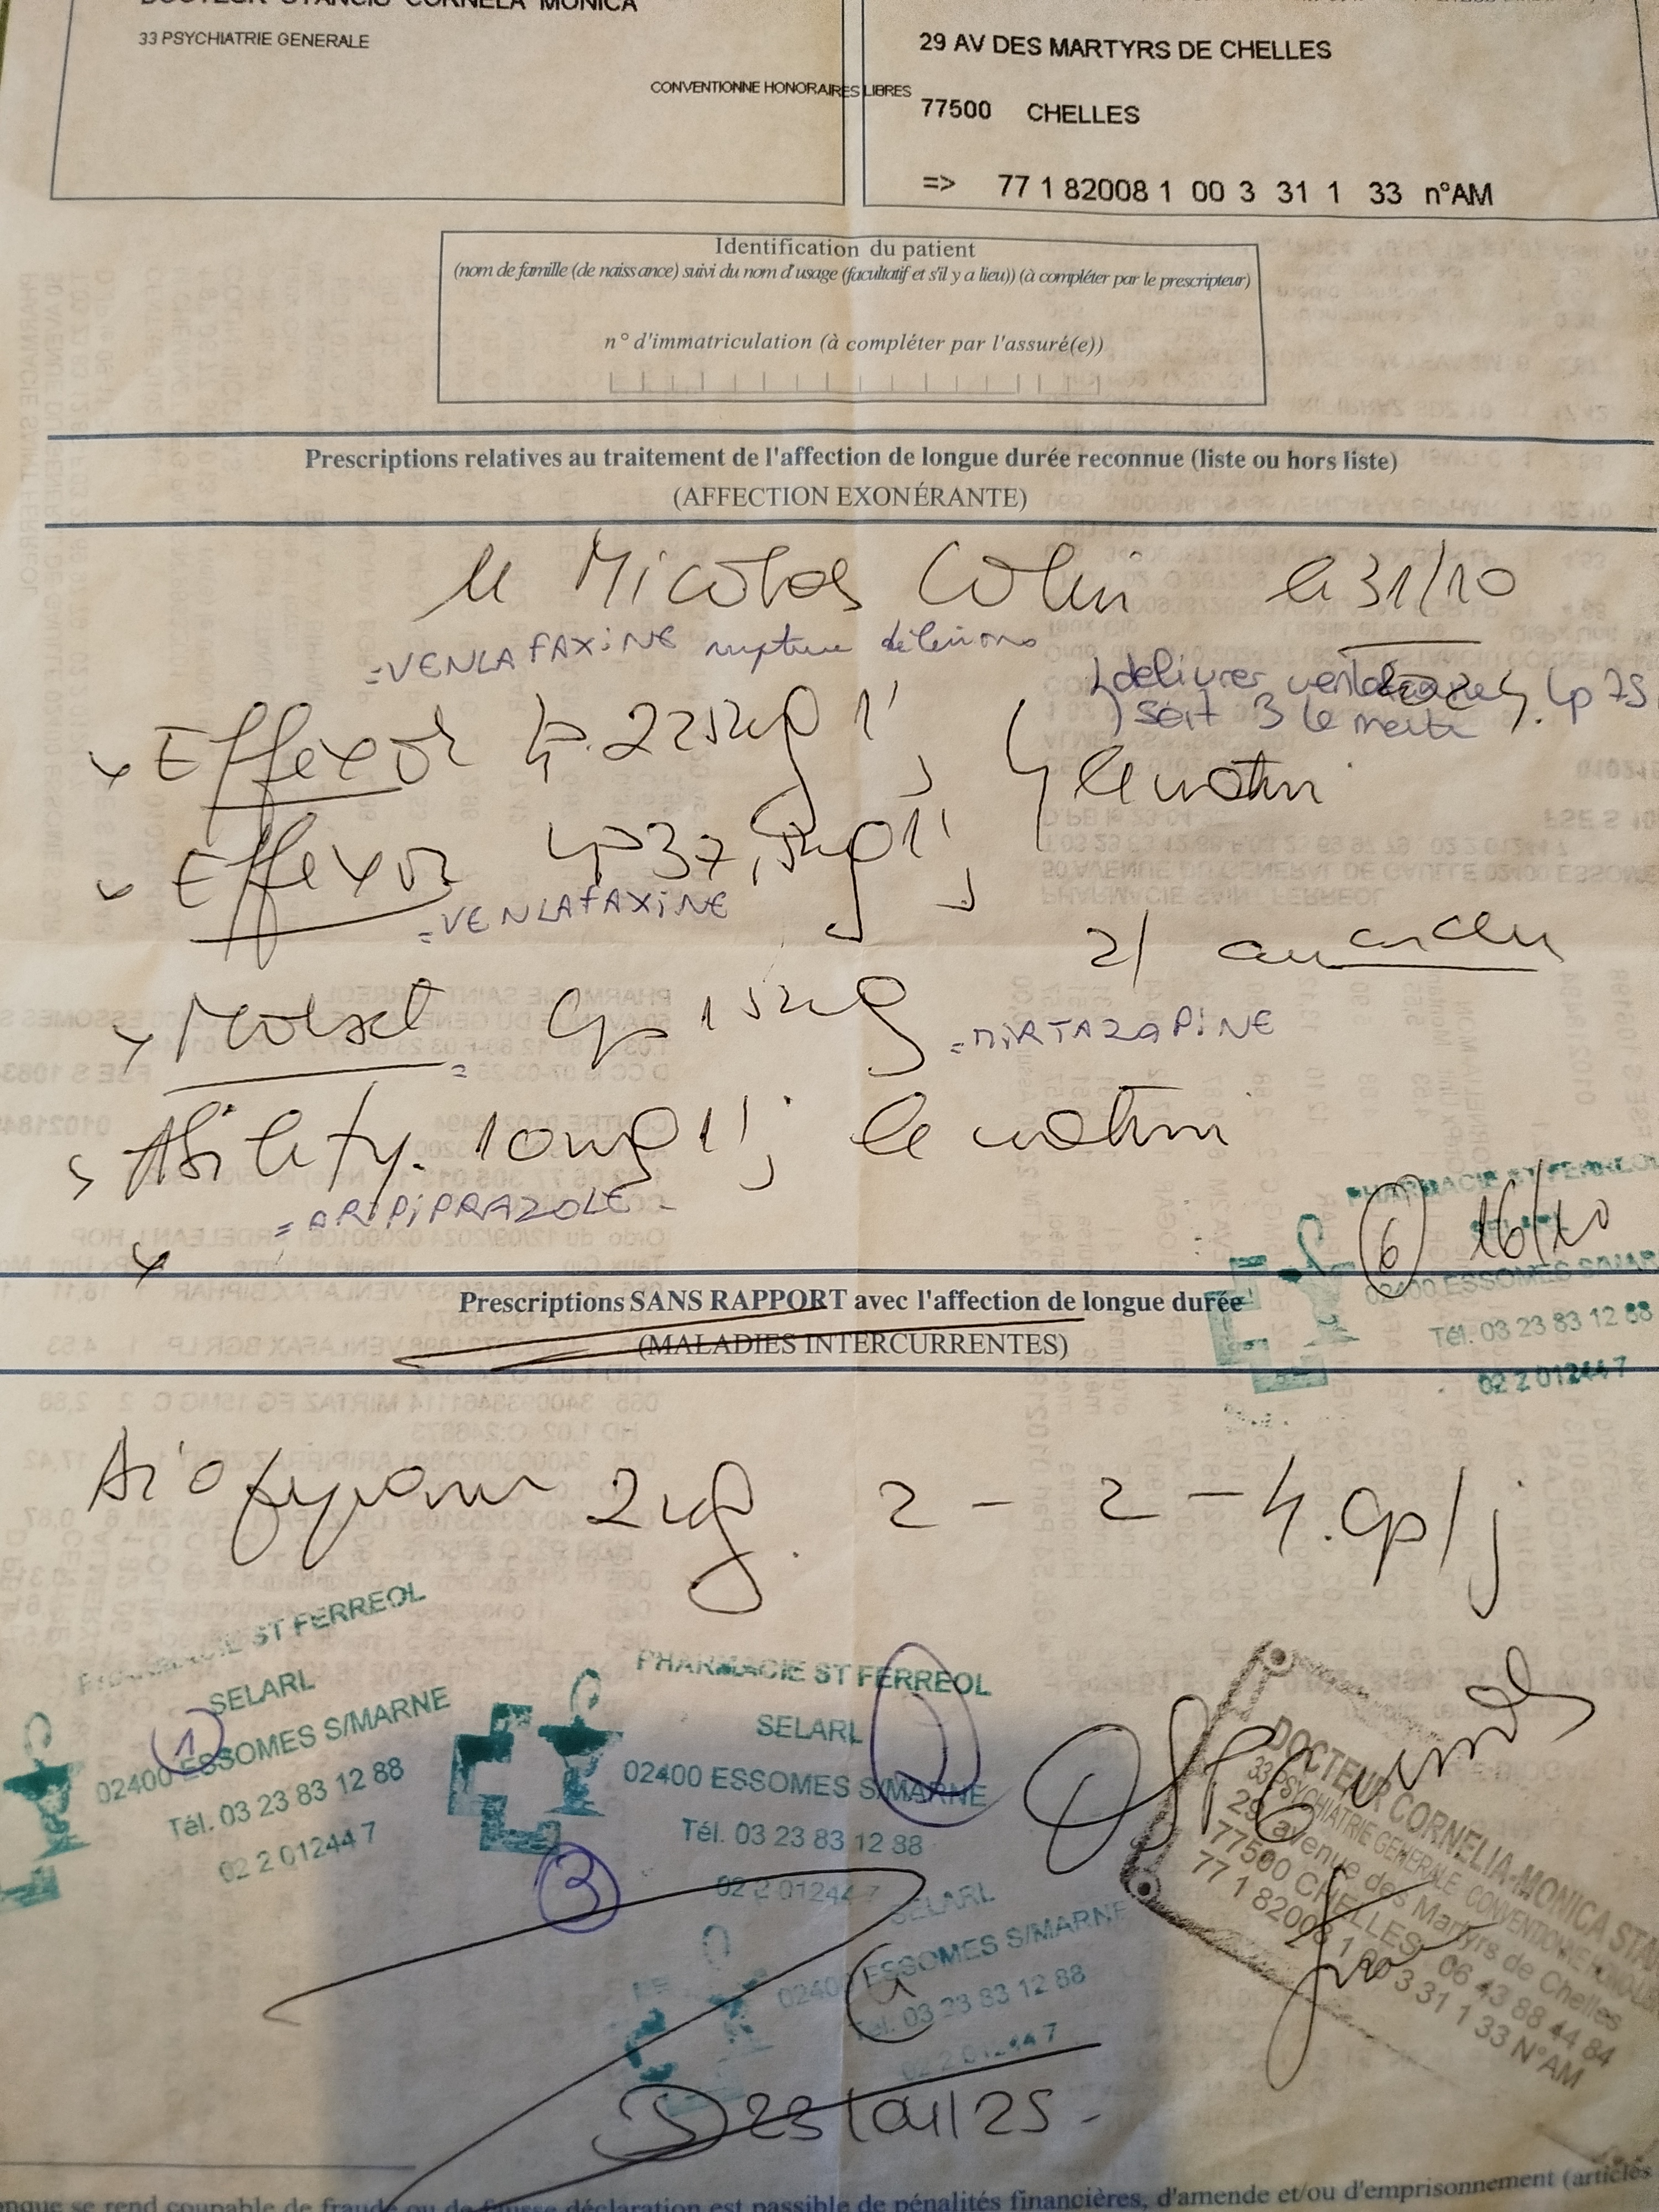 DOCTEUR STANCIU CORNELA MONICA
33 PSYCHIATRIE GENERALE
CONVENTIONNE HONORAIRES LIBRES
29 AV DES MARTYRS DE CHELLES
77500 CHELLES
=> 77 1 82008 1 00 3 31 1 33 n°AM
Identification du patient
(nom de famille (de naissance) suivi du nom d'usage (facultatif et s'il y a lieu)) (à compléter par le prescripteur)
n° d'immatriculation (à compléter par l'assuré(e))
Prescriptions relatives au traitement de l'affection de longue durée reconnue (liste ou hors liste)
(AFFECTION EXONÉRANTE)
M Nicolas Colin le 31/10
=VENLAFAXINE rupture
délivrer Lp 75
soit 3 le matin
Effexor Lp 225mg 1/j le matin
Effexor Lp 37,5mg 1/j
=VENLAFAXINE
2/ au coucher
Norset cp 15mg
=MIRTAZAPINE
Abilify. 10mg 1/j le matin
=ARIPIPRAZOLE
PHARMACIE ST FERREOL
6 16/10
02400 ESSOMES S/MARNE
Tél. 03 23 83 12 88
02 2 01244 7
Prescriptions SANS RAPPORT avec l'affection de longue durée
(MALADIES INTERCURRENTES)
2mg. 2 - 2 - 4. cp/j
PHARMACIE ST FERREOL
SELARL
1
02400 ESSOMES S/MARNE
Tél. 03 23 83 12 88
02 2 01244 7
PHARMACIE ST FERREOL
SELARL
02400 ESSOMES S/MARNE
Tél. 03 23 83 12 88
02 2 01244 7
3
SELARL
02400 ESSOMES S/MARNE
Tél. 03 23 83 12 88
02 2 01244 7
DOCTEUR CORNELIA-MONICA STA
33 PSYCHIATRIE GENERALE CONVENTIONNE HONO
29 avenue des Martyrs de Chelles
77500 CHELLES 06 43 88 44 84
77 1 82008 1 00 3 31 1 33 N°AM
23/04/25
onque se rend coupable de fraude ou de fausse déclaration est passible de pénalités financières, d'amende et/ou d'emprisonnement (articles